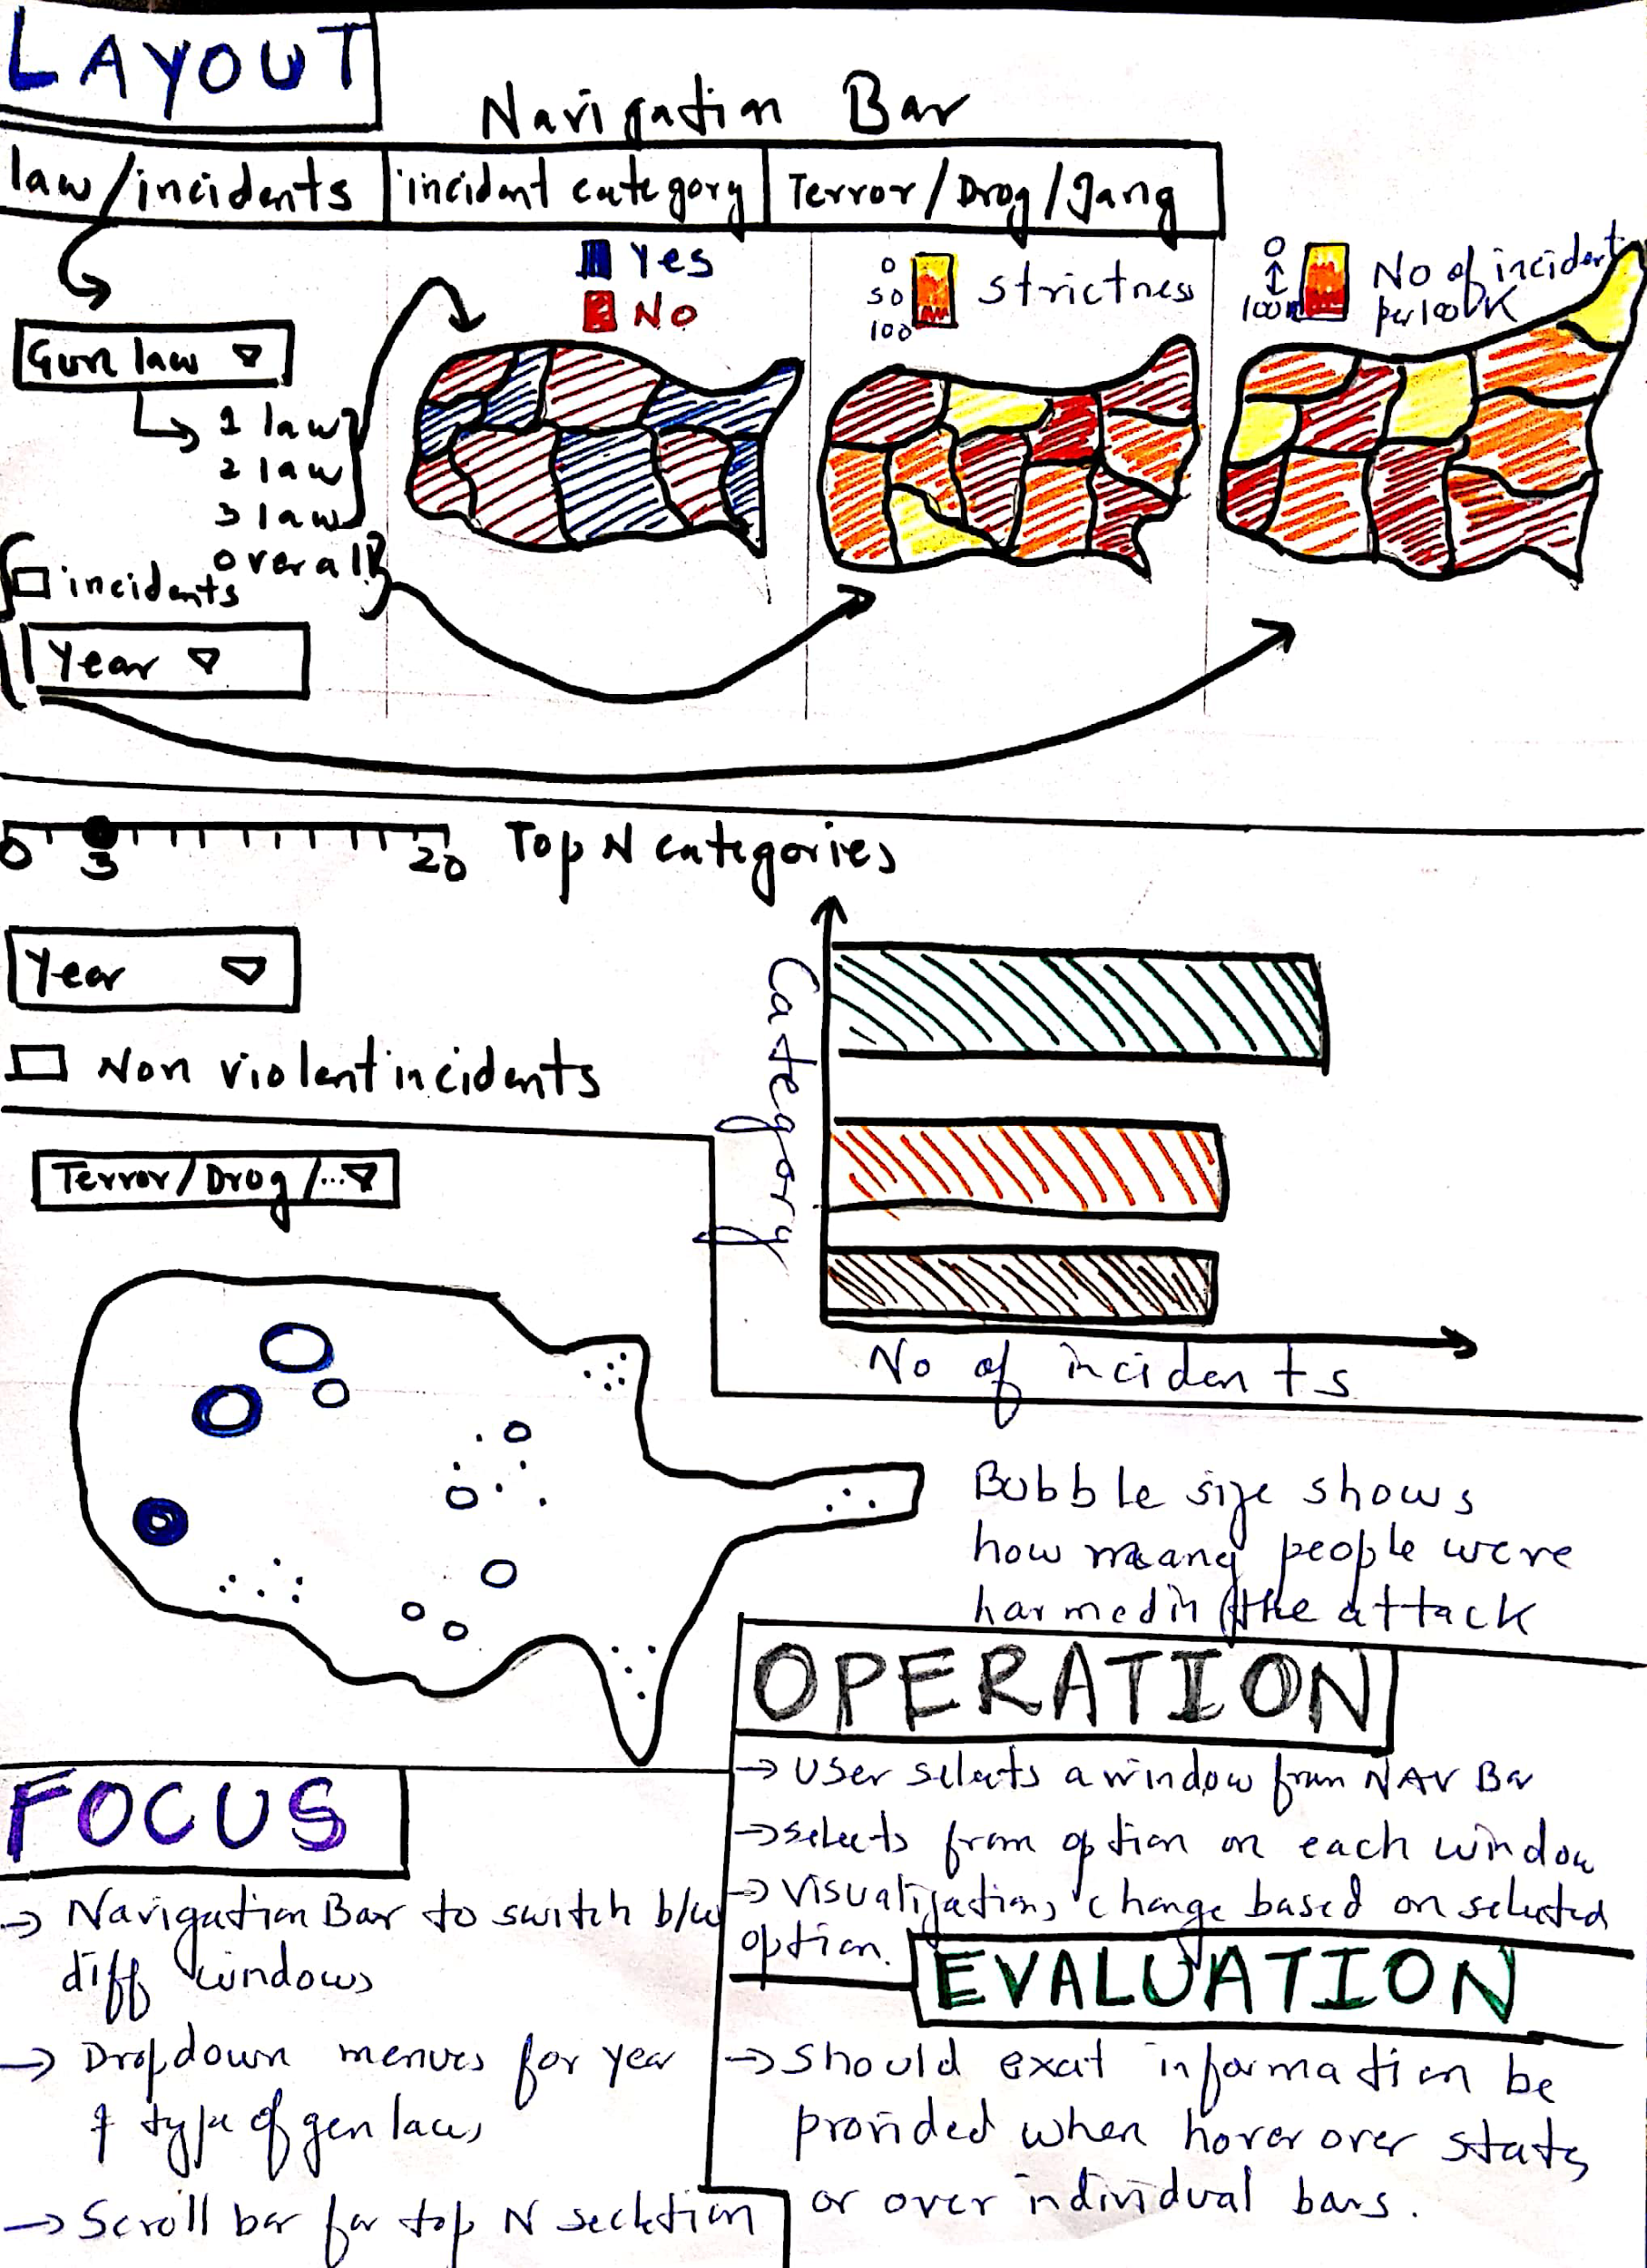 LAYOUT
Navigation Bar
law/incidents
incident category
Terror/Drog/Gang
Gun law
1 law
2 law
3 law
overall
incidents
Year
Yes
No
0
50
100
strictness
0
100
No of incident
per 100K
0
3
20
Top N categories
Year
Non violent incidents
Category
No of incidents
Terror/Drog/...
Bubble size shows
how many people were
harmed in the attack
OPERATION
→ User selects a window from NAV Bar
→ selects from option on each window
→ Visualizations change based on selected
option.
FOCUS
→ Navigation Bar to switch b/w
diff windows
→ Dropdown menues for year
& type of gen laws
→ Scroll bar for top N secktion
EVALUATION
→ Should exat information be
provided when hover over stats
or over individual bars.